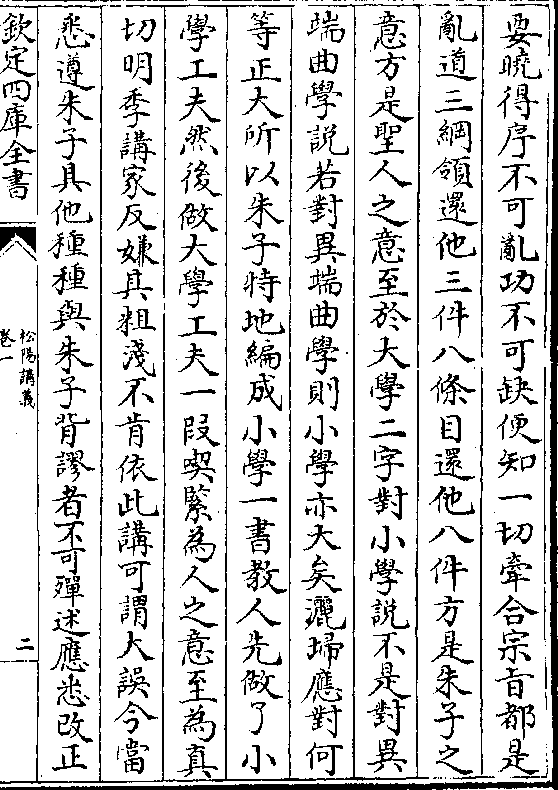 要曉得序不可亂功不可缺便知一切牽合宗旨都是
亂道三綱領還他三件八條目還他八件方是朱子之
意方是聖人之意至於大學二字對小學說不是對異
端曲學說若對異端曲學則小學亦大矣灑埽應對何
等正大所以朱子特地編成小學一書教人先做了小
學工夫然後做大學工夫一段喫緊為人之意至為真
切明季講家反嫌其粗淺不肯依此講可謂大誤今當
悉遵朱子其他種種與朱子背謬者不可殫述應悉改正
欽定四庫全書
松陽講義
卷一
二